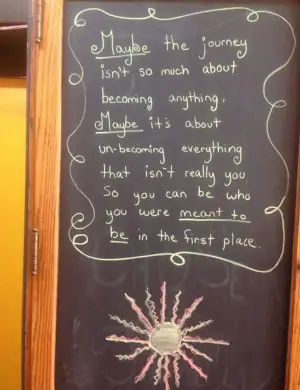 Maybe the journey
isn't so much about
becoming anything,
Maybe it's about
un-becoming everything
that isn't really you
So you can be who
you were meant to
be in the first place.